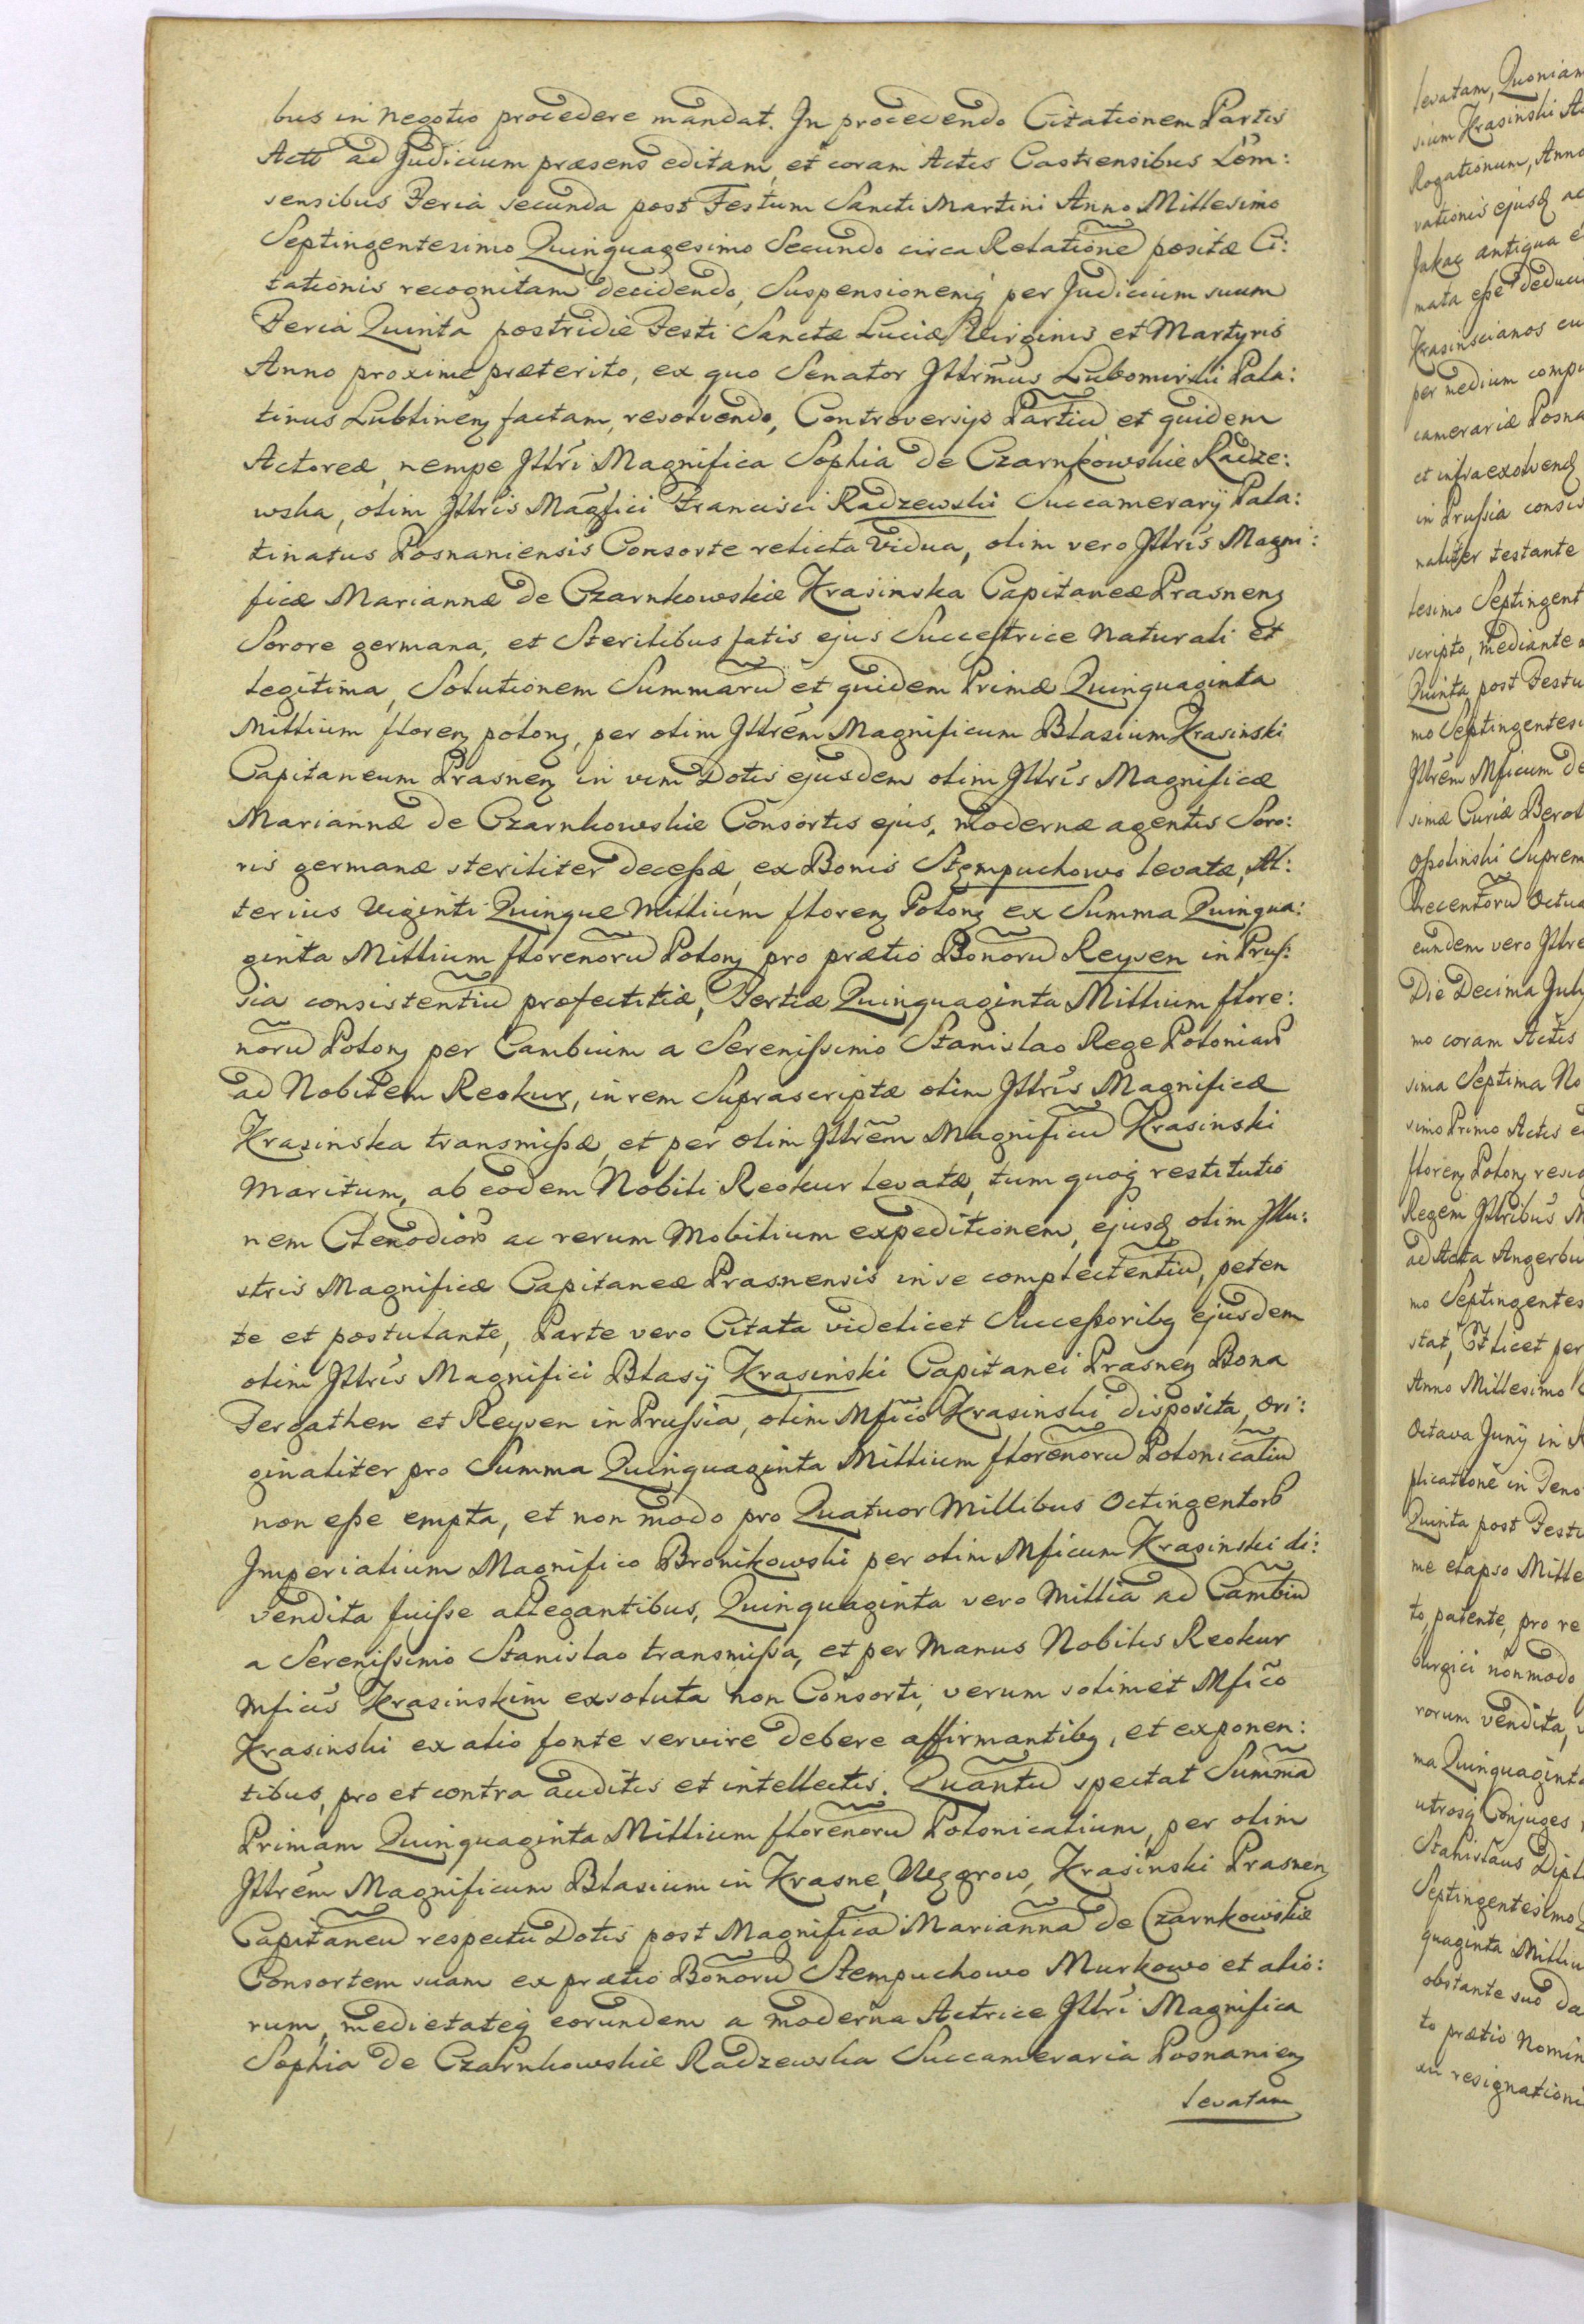 bus in negotio procedere mandat. In procedendo Citationem Partis
Actć ad Judicium præsens editam, et coram Actis Castrensibus Lom:
sensibus Feria secunda post Festum Sancti Martini Anno Millesimo
Septingentesimo Quinquagesimo Secundo circa Relatione positæ Ci:
tationis recognitam decidendo, Suspensionemq per Judicium suum
Feria Quinta postridie Festi Sanctæ Luciæ Virginis et Martyris
Anno proxime præterito, ex quo Senator Jllrmus Lubomirski Pala:
tinus Lublinen factam, resolvendo, Controversijs Partiu et quidem
Actoreæ, nempe Jllri Magnifica Sophia de Czarnkowskie Radze:
wska, olim Jllris Magfici Francisci Radzewski Succamerarij Pala:
tinatus Posnaniensis Consorte relicta Vidua, olim vero Jllris Magni:
ficæ Mariannæ de Czarnkowskie Krasinska Capitaneæ Prasnen
Sorore germana, et Sterilibus fatis ejus Successtrice Naturali et
legitima, Solutionem Summaru et quidem Primæ Quinquaginta
Millium floren polon, per olim Jllrem Magnificum Blasium Krasinski
Capitaneum Prasnen in vim Dotis ejusdem olim Jllris Magnificæ
Mariannæ de Czarnkowskie Consortis ejus, modernæ agentis Soro:
ris germanæ steriliter decessæ, ex Bonis Stempuchowo levatæ, Al:
terius Viginti Quinque Millium floren Polon ex Summa Quinqua:
ginta Millium florenoru Polon pro prætio Bonoru Reysen in Prus:
sia consistentiu profectitiæ, Tertiæ Quinquaginta Millium flore:
noru Polon per Cambium a Serenissimo Stanislao Rege Poloniar
ad Nobilem Reokur, in rem Suprascriptæ olim Jllris Magnificæ
Krasinska transmissæ, et per olim Jllrem Magnificu Krasinski
Maritum, ab eodem Nobili Reokur levatæ, tum quoq restitutio
nem Clenodior ac rerum Mobilium expeditionem, ejusq olim Jllu:
stris Magnificæ Capitaneæ Prasnensis in se complectentiu, peten
te et postulante, Parte vero Citata videlicet Successoribq ejusdem
olim Jllris Magnifici Blasij Krasinski Capitanei Prasnen Bona
Fergathen et Reysen in Prussia, olim Mfico Krasinski disposita, ori:
ginaliter pro Summa Quinquaginta Millium florenoru Polonicaliu
non esse empta, et non modo pro Quatuor Millibus Octingentor
Jmperialium Magnifico Bronikowski per olim Mficum Krasinski di:
vendita fuisse allegantibus, Quinquaginta vero Millia ad Cambiu
a Serenissimo Stanislao transmissa, et per Manus Nobilis Reokur
Mficus Krasinskim exsoluta non Consorti, verum solimet Mfico
Krasinski ex alio fonte servire debere affirmantibq, et exponen:
tibus, pro et contra auditis et intellectis. Quantu spectat Summa
Primam Quinquaginta Millium florenoru Polonicalium, per olim
Jllrem Magnificum Blasium in Krasne, Węgrow, Krasinski Prasnen
Capitaneu respectu Dotis post Magnifica Marianna de Czarnkowskie
Consortem suam ex prætio Bonoru Stempuchowo Murkowo et alio:
rum, medietateq eorundem a moderna Actrice Jllri Magnifica
Sophia de Czarnkowskie Radzewska Succameraria Posnanien
levatam
levatam, Quoniam
sium Krasinski
Rogationum, Anno
vationis ejusq ac
antiqua
mata esse deduci
Krasinscianos cu
per medium compu
camerariæ Posna
et infra exolvend
in Prussia consis
naliter testante
lesimo Septingent
scripto, mediante
Quinta post Festu
mo Septingentesi
Jllrem Mficum de
simæ Curiæ Berol
Ossolinski Suprem
Trecentoru Octua
eundem vero Jllre
Die Decima July
mo coram Actis
sima Septima No
simo Primo Actis
floren Polon resig
Regem Jllribus M
ad Acta Angerbu
mo Septingentes
stat, Et licet per
Anno Millesimo
Octava Junij in
plicatione in Feno
Quinta post Festu
me elapso Mille
to, patente, pro re
burgici non modo
rorum vendita,
ma Quinquaginta
utrosq Conjuges
Stanislaus Dipl
Septingentesimo
quaginta Milliu
obstante suo da
to prætio Nomin
resignationi